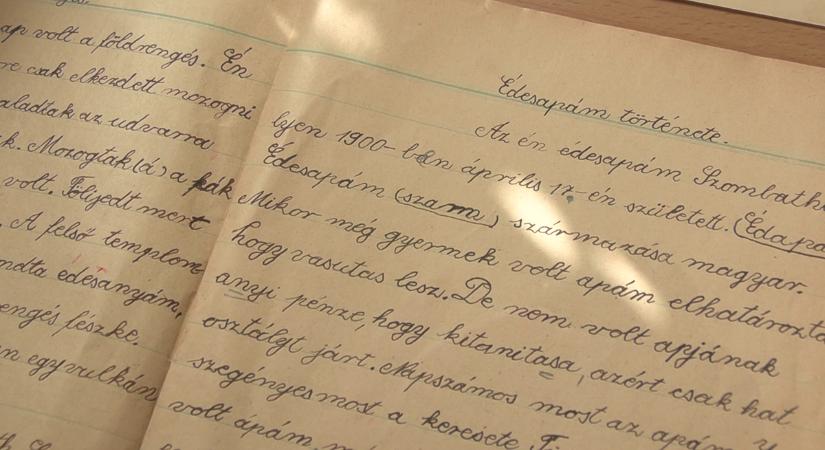 ap volt a földrengés. Én
re csak elkezdett mozogni
aladtak az udvarra
k. Mozogtak(á) a fák
volt.Följedt mert
A felső templom
ndta edesanyám,
engés fészke.
n egy vulkán
Édesapám története.
Az én édesapám Szombathe
lyen 1900-ban április 17-én született. (Édapa
Édesapám (szam) származása magyar.
Mikor még gyermek volt apám elhatározta
hogy vasutas lesz. De nem volt apjának
anyi pénze, hogy kitanitasa, azért csak hat
osztályt járt. Napszámos most az apám
szegényes most a keresete.
volt ápám